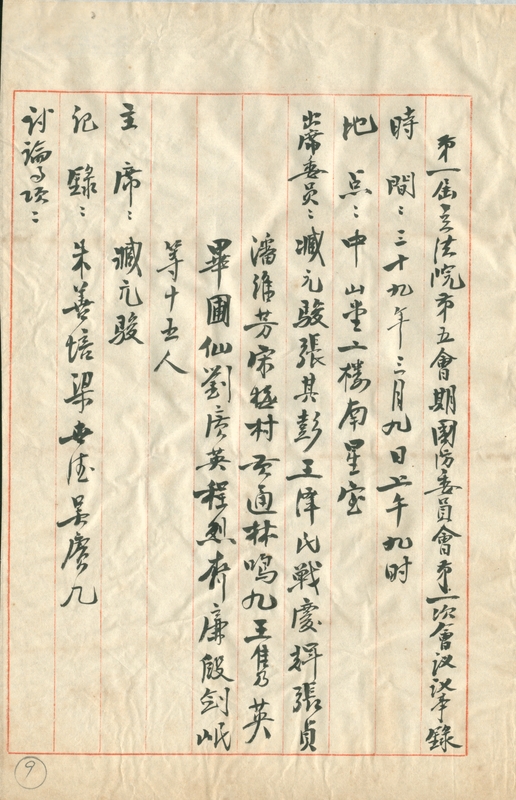 第一屆立法院第五會期國防委員會第一次會议議事錄
時 間：三十九年三月九日上午九时
地 点：中山堂二楼南星室
出席委員：臧元駿張其彭王澤民戰慶輝張貞
潘維芳宋村通林鳴九王雋英
畢圃仙劉廣英程烈齊廉殷剑岷
等十五人
主 席：臧元骏
记 錄：朱善培梁吳賡几
讨論事项：
9